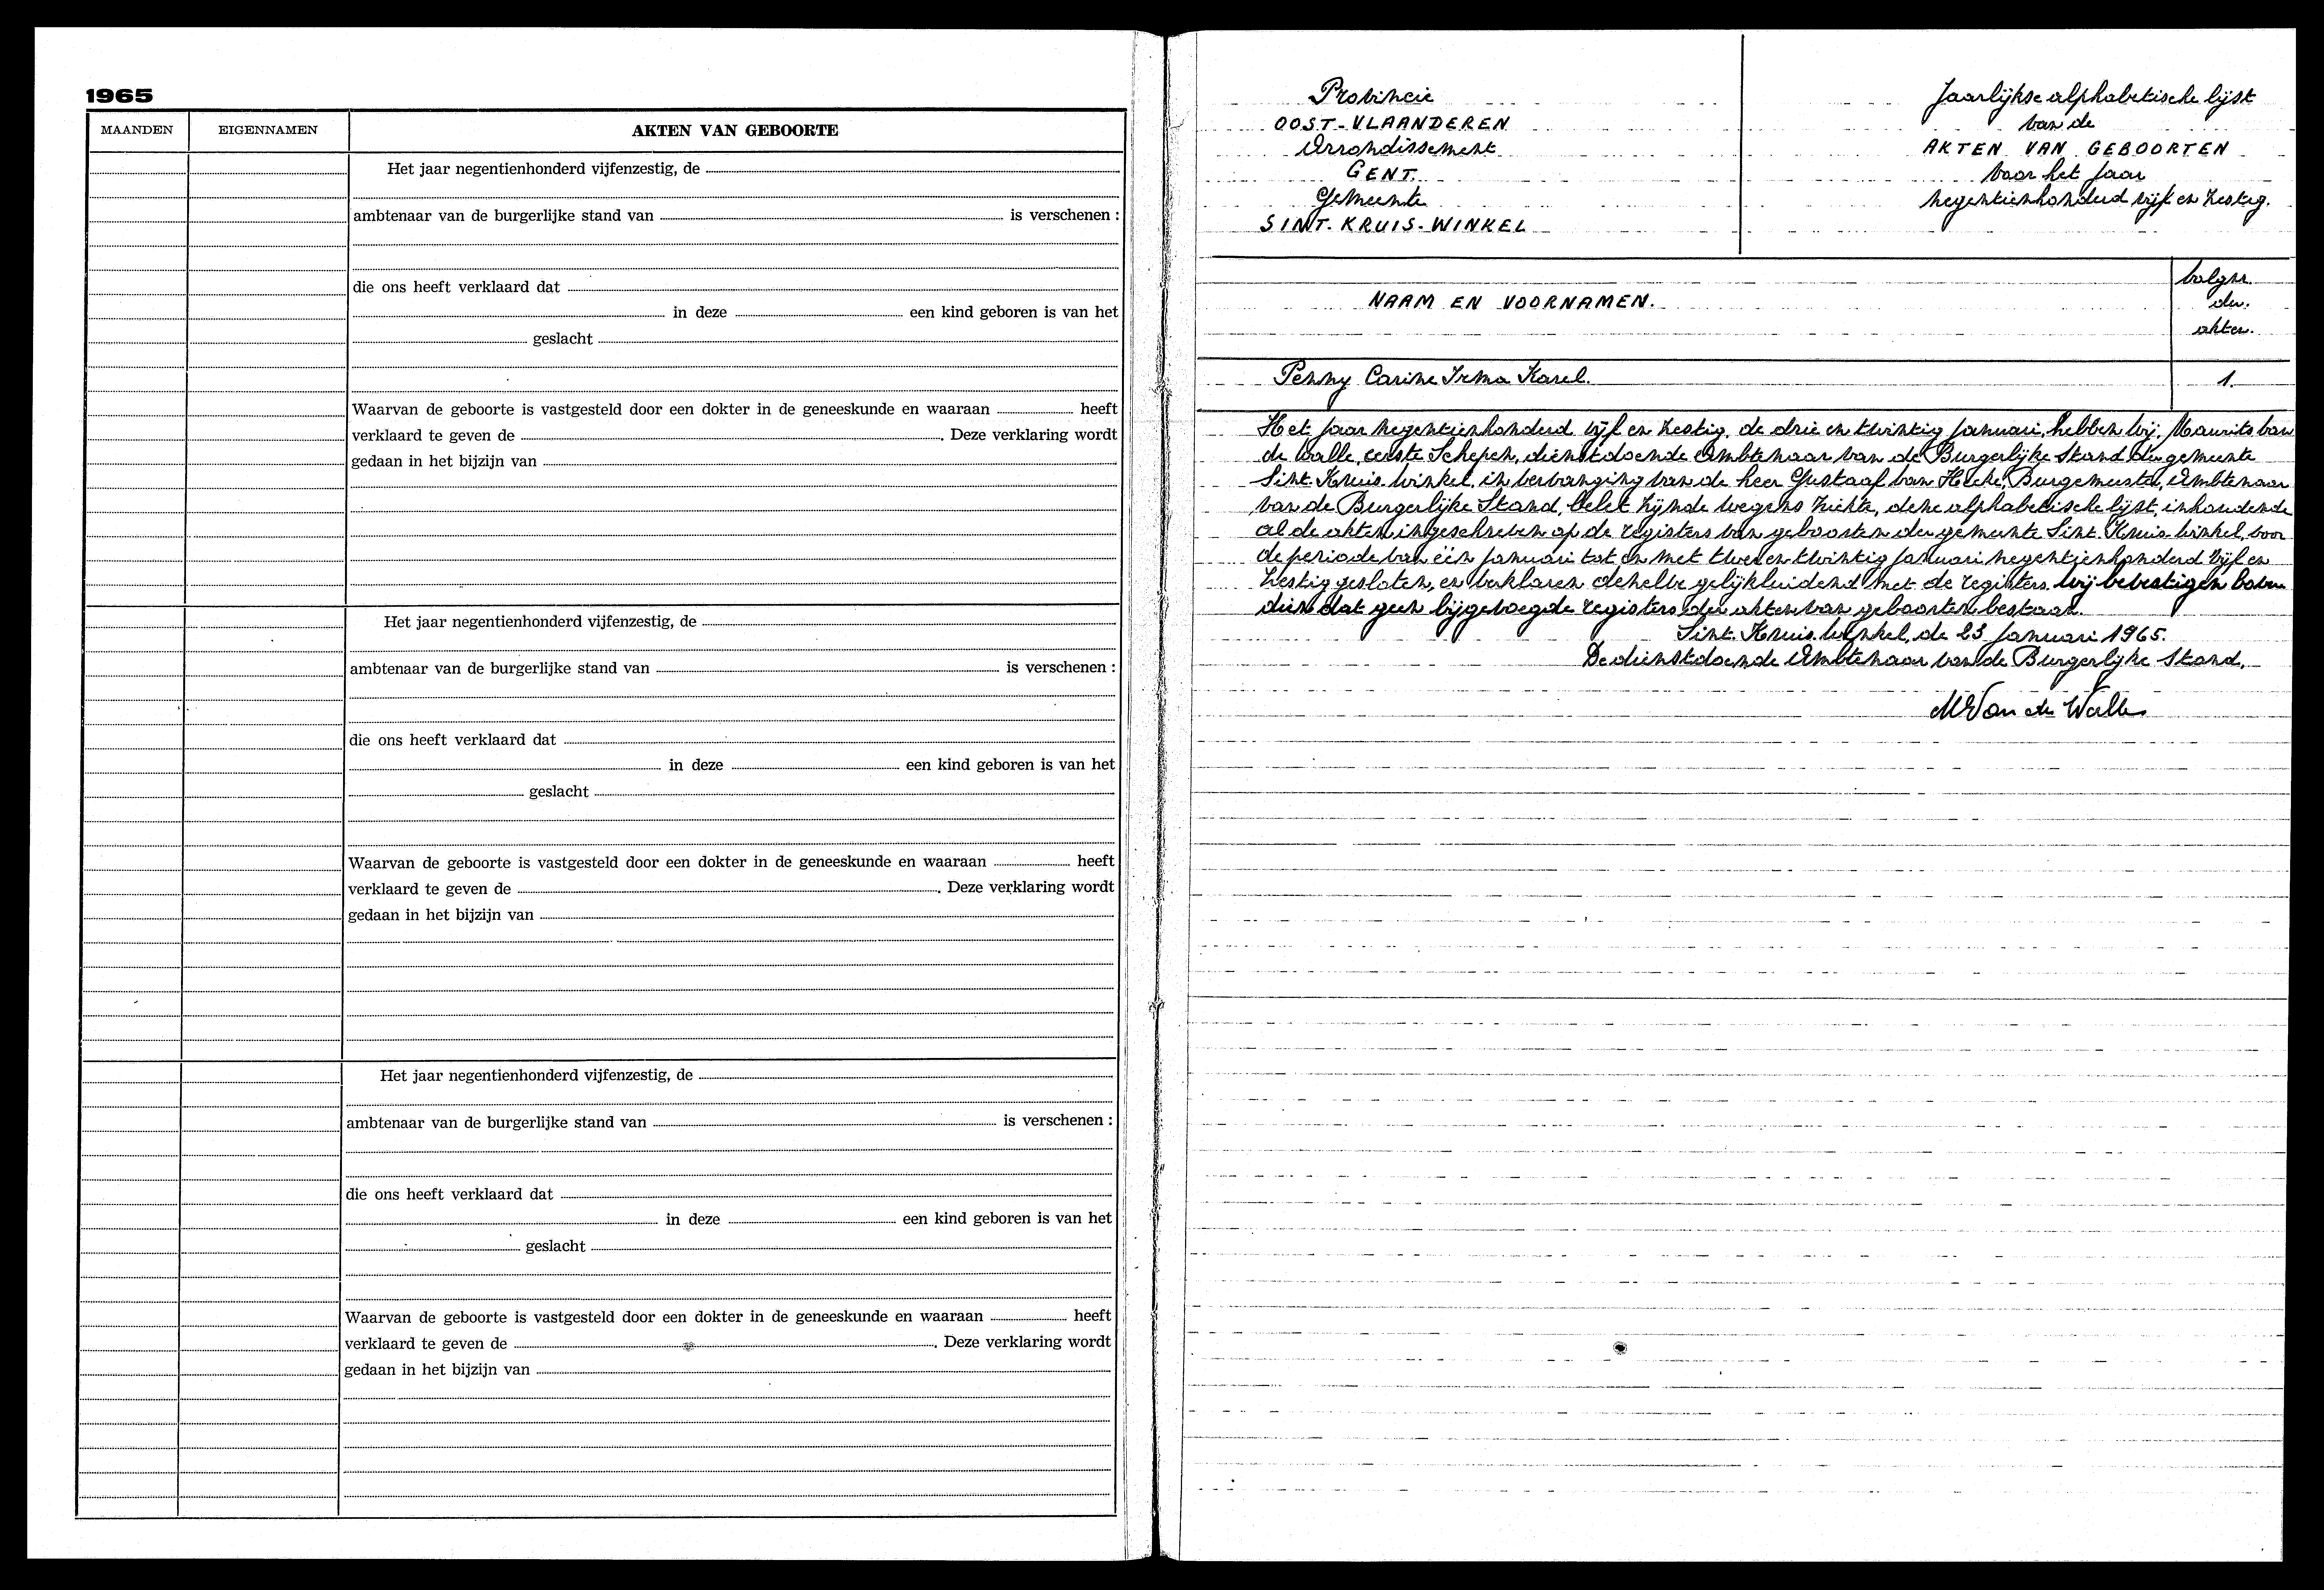 1965
MAANDEN EIGENNAMEN AKTEN VAN GEBOORTE
Het jaar negentienhonderd vijfenzestig, de
ambtenaar van de burgerlijke stand van is verschenen :
die ons heeft verklaard dat
in deze een kind geboren is van het
geslacht
Waarvan de geboorte is vastgesteld door een dokter in de geneeskunde en waaraan heeft
verklaard te geven de . Deze verklaring wordt
gedaan in het bijzijn van
Het jaar negentienhonderd vijfenzestig, de
ambtenaar van de burgerlijke stand van is verschenen :
die ons heeft verklaard dat
in deze een kind geboren is van het
geslacht
Waarvan de geboorte is vastgesteld door een dokter in de geneeskunde en waaraan heeft
verklaard te geven de . Deze verklaring wordt
gedaan in het bijzijn van
Het jaar negentienhonderd vijfenzestig, de
ambtenaar van de burgerlijke stand van is verschenen :
die ons heeft verklaard dat
in deze een kind geboren is van het
geslacht
Waarvan de geboorte is vastgesteld door een dokter in de geneeskunde en waaraan heeft
verklaard te geven de . Deze verklaring wordt
gedaan in het bijzijn van
Provincie
OOST-VLAANDEREN
Arrondissement
GENT.
Gemeente
SINT-KRUIS-WINKEL
Jaarlijkse alphabetische lijst
van de
AKTEN VAN GEBOORTEN
voor het jaar
negentienhonderd vijf en zestig.
NAAM EN VOORNAMEN.
volgnr.
der.
akten.
Penny Carine Irma Karel. 1.
Het jaar negentienhonderd vijf en zestig, de drie en twintig januari, hebben wij, Maurits van
de Walle, eerste Schepen, dienstdoende Ambtenaar van de Burgerlijke Stand der gemeente
Sint-Kruis-Winkel, in vervanging van de heer Gustaaf van Hecke, Burgemeester, Ambtenaar
van de Burgerlijke Stand, belet zijnde wegens ziekte, deze alphabetische lijst, inhoudende
al de akten ingeschreven op de registers van geboorten der gemeente Sint-Kruis-Winkel, voor
de periode van één januari tot en met twee en twintig januari negentienhonderd vijf en
zestig gesloten, en verklaren dezelve gelijkluidend met de registers. Wij bevestigen boven
dien dat geen bijgevoegde registers der akten van geboorten bestaan.
Sint-Kruis-Winkel, de 23 januari 1965.
De dienstdoende Ambtenaar van de Burgerlijke Stand,
M Van de Walle